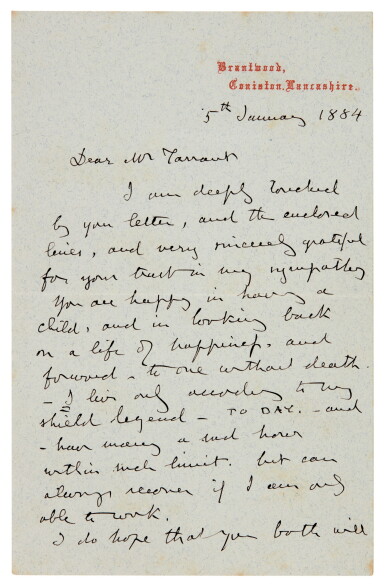 Brantwood,
Coniston, Lancashire.
5th January 1884
Dear Mr Tarrant
I am deeply touched
by your letter, and the enclosed
lines, and very sincerely grateful
for your trust in my sympathy
You are happy in having a
child, and in looking back
on a life of happiness, and
forward - to one without death.
- I live only according to my
shield legend - TO DAY. - and
- have many a sad hour
within such limit. but can
always recover if I am only
able to work.
I do hope that you both will